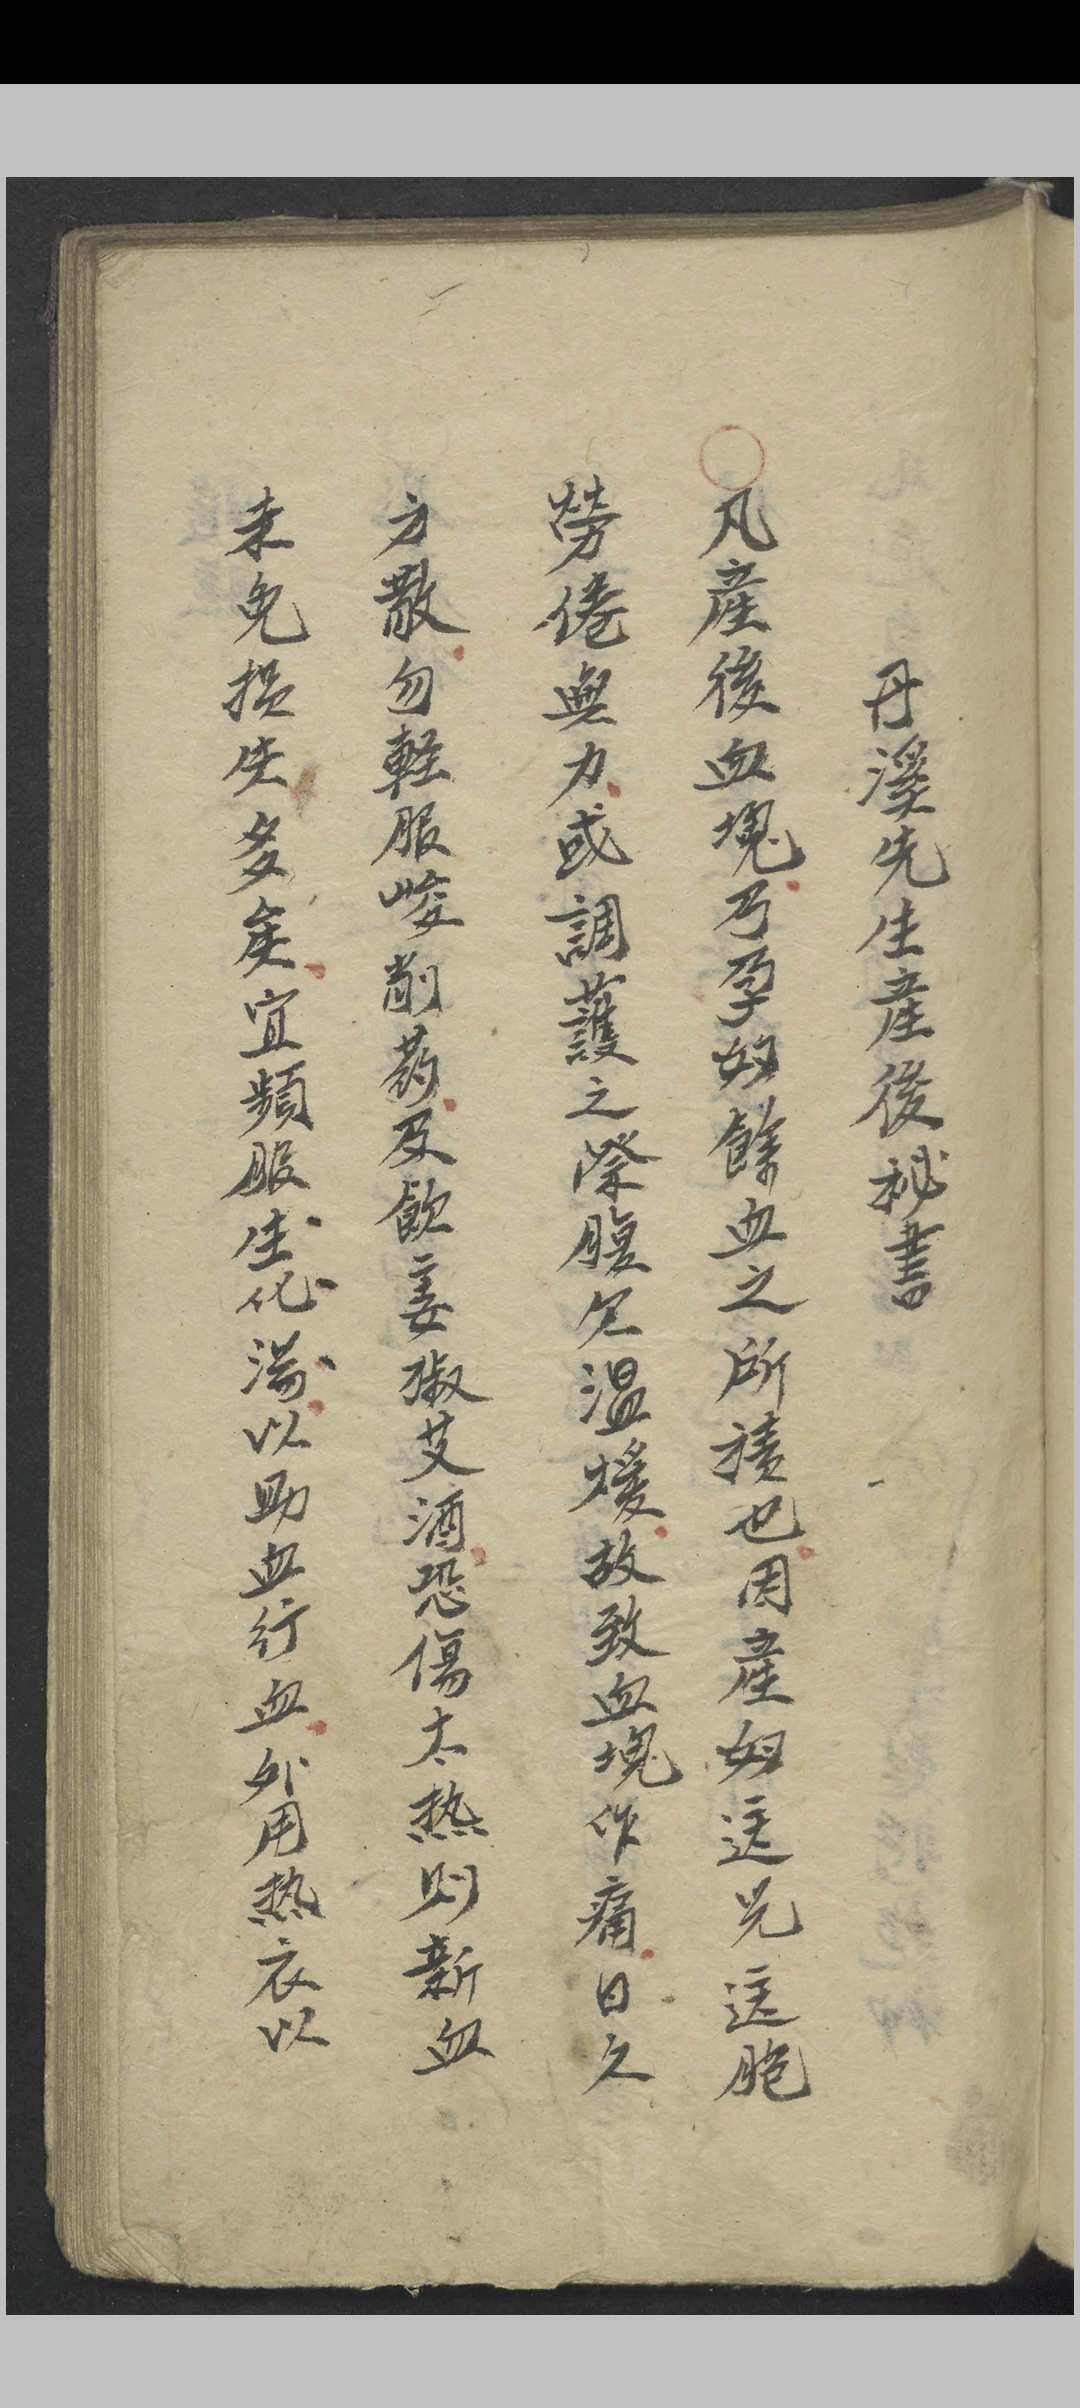 丹溪先生產後秘書
凡產後血塊乃孕妇餘血之所積也因產妇送兒送胞
勞倦無力或調護之際腹欠溫煖故致血塊作痛日久
方散勿軽服峻削药及飲姜椒艾酒恐傷太热则新血
未免损失多矣宜頻服生化湯以助血行血外用热衣以